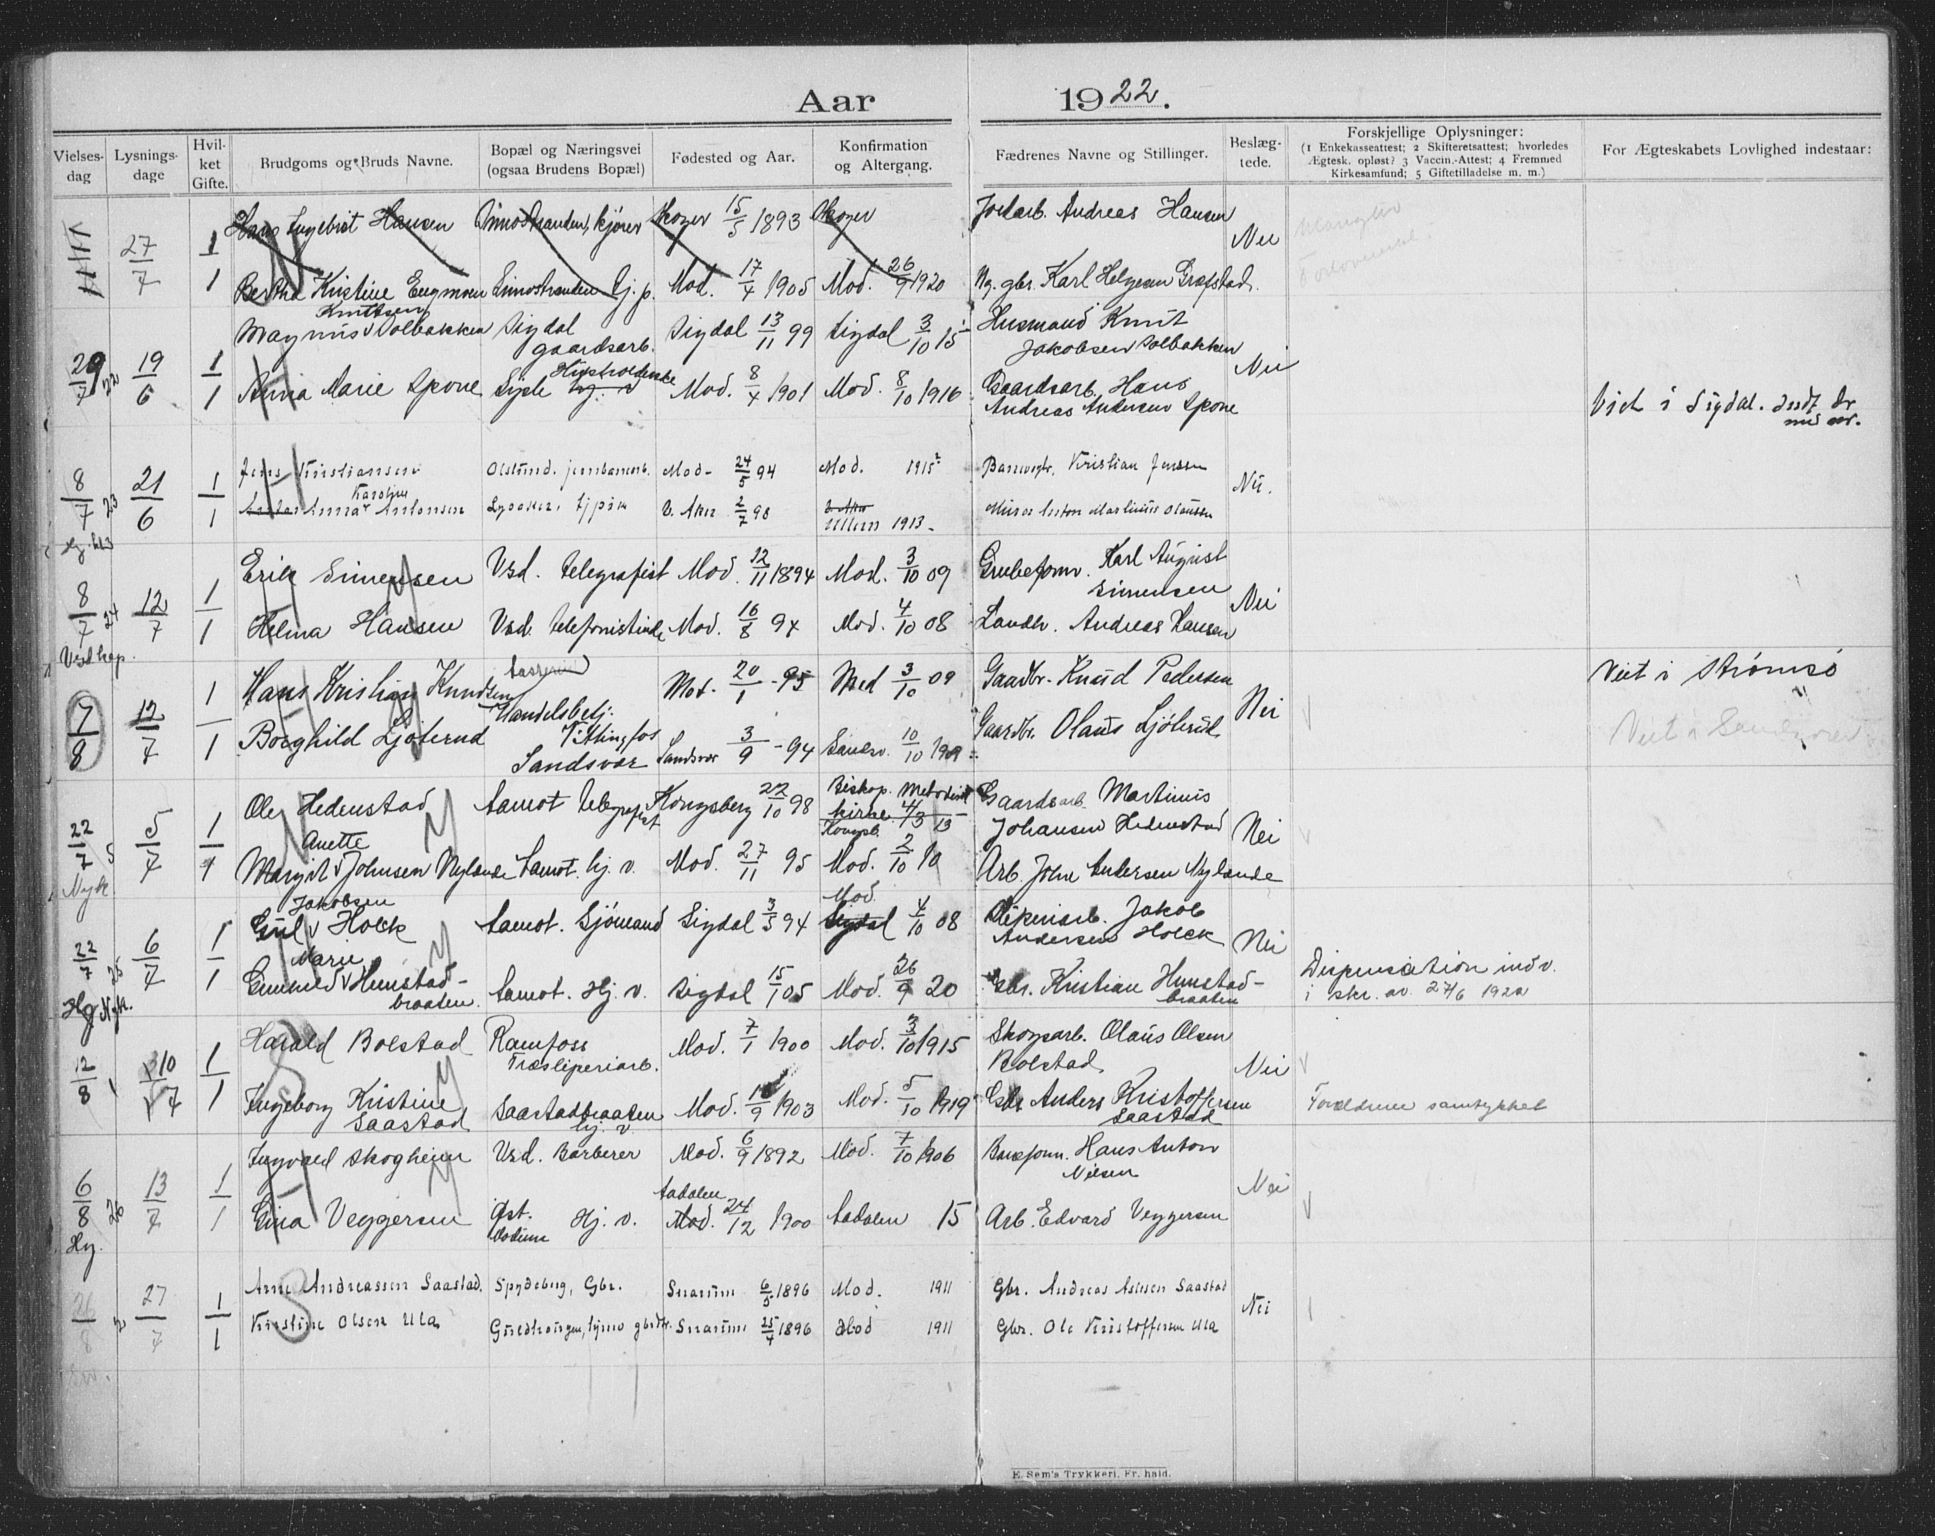 Aar 1922.
Vielsesdag
Lysningsdage
Hvilket Gifte.
Brudgoms og Bruds Navne.
Bopæl og Næringsvei (ogsaa Brudens Bopæl)
Fødested og Aar.
Konfirmation og Altergang.
Fædrenes Navne og Stillinger.
Beslægtede.
Forskjellige Oplysninger:
(1 Enkekasseattest; 2 Skifteretsattest; hvorledes
Ægtesk. opløst? 3 Vaccin.-Attest; 4 Fremmed
Kirkesamfund; 5 Giftetilladelse m. m.)
For Ægteskabets Lovlighed indestaar:
27/7 1 Hans Ingebret Hansen kjører Skoger 15/5 1893 Skoger Jordarb. Andreas Hansen Nei
1 Bertha Kristine Engmoen Simostranden hj. p. Mod. 17/4 1905 Mod. 26/9 1920 Karl Helgesen Grefstad.
Knutsen
29/7 22 19/6 1 Magnus v Solbakken Sigdal gaardsarb. Sigdal 13/11 99 Sigdal 3/10 15 Husmand Knut Jakobsen Solbakken Nei
1 Anna Marie Spone Sysle hj. v Husholderske Mod. 8/4 1901 Mod. 8/10 1916 Gaardsarb. Hans Andreas Andersen Spone
Viet i Sigdal.
8/7 23 21/6 1 Jens Kristiansen jernbanearb. Mod. 24/5 94 Mod. 1915 Kristian Jensen Nei.
1 Anna Karoline Antonsen Lysaker, V. Aker 2/7 98 V. Aker Ullern 1913 Anton Martinius Olaussen
8/7 24 12/7 1 Erik Simensen Vsd. telegrafist Mod. 12/11 1894 Mod. 3/10 09 Grubeform. Karl August Simensen Nei
1 Helma Hansen Vsd. telefonistinde Mod. 16/8 94 Mod. 4/10 08 Landh. Andreas Hansen
Vsd kap.
7/8 12/7 1 Hans Kristian Knudsen Handelsbetj. Mod. 20/1 - 95 Mod 3/10 09 Gaardbr. Knud Pedersen Nei Viet i Strømsø
1 Borghild Ljøterud Vittingfos Sandsvær Sandsvær 3/9 - 94 Sandsv. 10/10 1909 Gaardbr. Olaus Ljøterud
22/7 5/7 1 Ole Hedenstad Aamot telegrafist Kongsberg 22/10 98 Biskop. Metodist kirke 4/3 13 Kongsb. Gaardsarb. Martinius Johansen Hedenstad Nei
Nyk.
1 Margit Anette v Johnsen Nylende Aamot. hj. v. Mod. 27/11 95 Mod. 2/10 10 Arb. John Andersen Nylende
22/7 25 6/7 1 Jakobsen v Holck Aamot. Sjømand Sigdal 3/5 94 Sigdal Mod. 4/10 08 Jakob Andersen Holck Nei
Hg Nyk.
1 Gunhild Marie v Hunstadbraaten. Aamot. Hj. v. Sigdal 15/1 05 Mod. 26/9 20 Gbr. Kristian Hunstadbraaten
Dispensation indv. i skr. av 27/6 1922
12/8 10/7 1 Harald Bolstad Ramfoss Træsliperiarb. Mod. 7/1 1900 Mod. 3/10 1915 Skogsarb. Olaus Olsen Bolstad Nei
1 Ingeborg Kristine Saastad Saastadbraaten hj. v. Mod. 1903 Mod. 5/10 1919 Gbr Anders Kristoffersen Saastad Forældrene samtykket
6/8 26 13/7 1 Ingvald Skogheim Vsd. Barberer Mod. 6/9 1892 Mod. 7/10 1906 Hans Anton Nielsen Nei
Hg.
1 Gina Veggersen Øst. Modum Hj. v. Aadalen Mod. 24/12 1900 Aadalen 15 Arb. Edvard Veggersen
26/8 2 27/7 1 Arne Andreassen Saastad. Spydeberg, Gbr. Snarum 6/5 1896 Mod. 1911 Gbr. Andreas Saastad Nei
1 Kirstine Olsen Ula Snarum 25/4 1896 Mod 1911 Gbr. Ole Kristoffersen Ula
E. Sem's Trykkeri, Fr. hald.